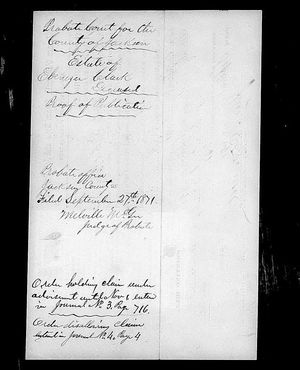 Probate Court for the
County of Jackson
Estate of
Ebenezer Clark
Deceased
Proof of Publication
Probate office
Jackson County
Filed September 27th 1871
Melville McGee
Judge of Probate
Order holding claim under
advisement until Nov 6 enter
in Journal No. 3. Page 716.
Order disallowing claim
entered in journal No 4. Page 4